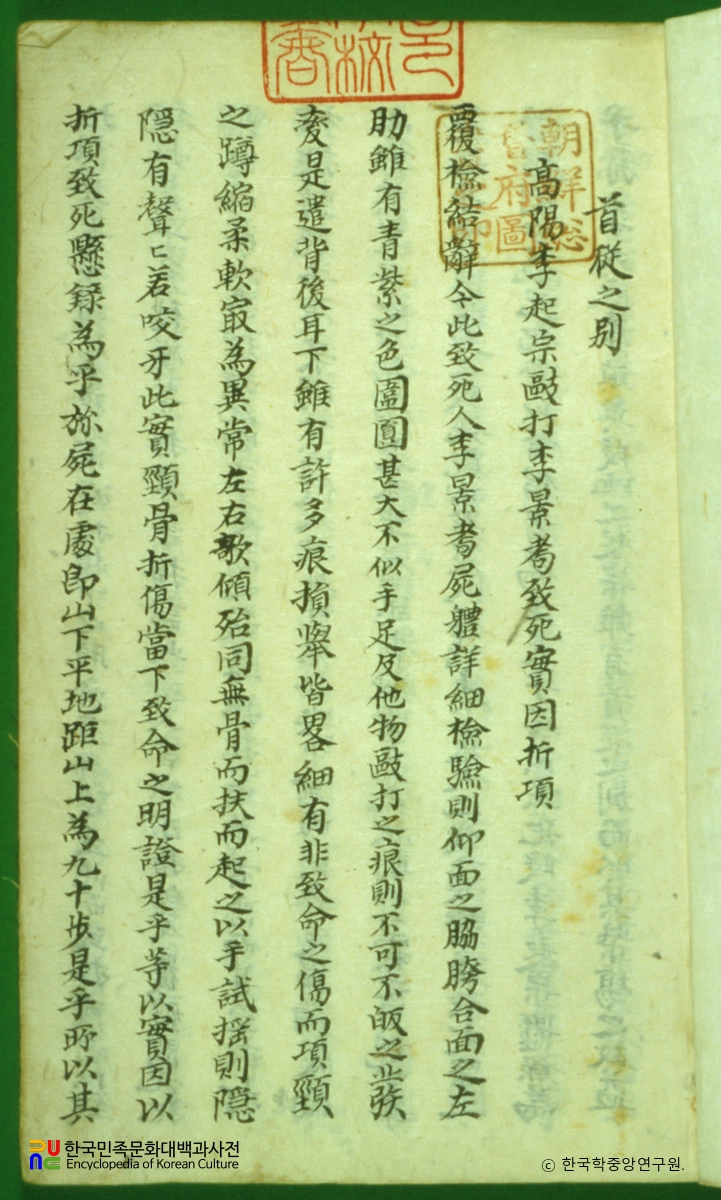 首從之別
高陽李起宗敺打李景耇致死實因折項
覆檢結辭今此致死人李景耇屍體詳細檢驗則仰面之脇膀合面之左
肋雖有靑紫之色圍圓甚大不似手足及他物敺打之痕則不可不
麥是遣背後耳下雖有許多痕損擧皆畧細有非致命之傷而項頸
之蹲縮柔軟㝡為異常左右欹傾殆同無骨而扶而起之以手試搖則隱
隠有聲〻若咬牙此實頸骨折傷當下致命之明證是乎等以實因以
折項致死懸錄為乎旀屍在處卽山下平地距山上為九十步是乎所以其
朝鮮総
府圖
한국민족문화대백과사전
Encyclopedia of Korean Culture
ⓒ 한국학중앙연구원.